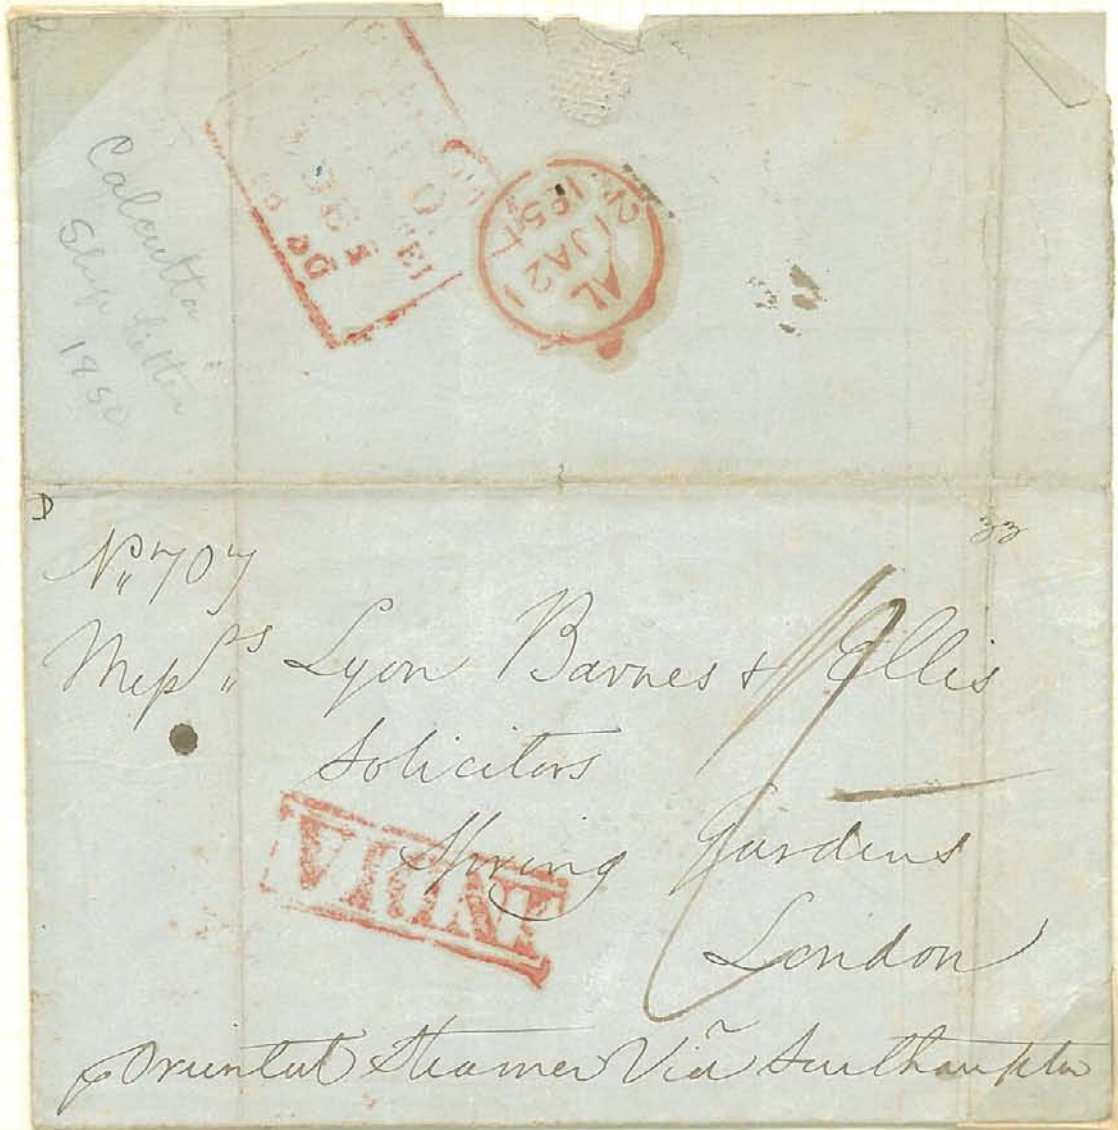 Calcutta
Ship Letter
1850
AL
21 JA 21
1851
D
33
No 707
Messrs Lyon Barnes & Ellis
Solicitors
Spring Gardens
London
INDIA
p Oriental Steamer Viã Southampton